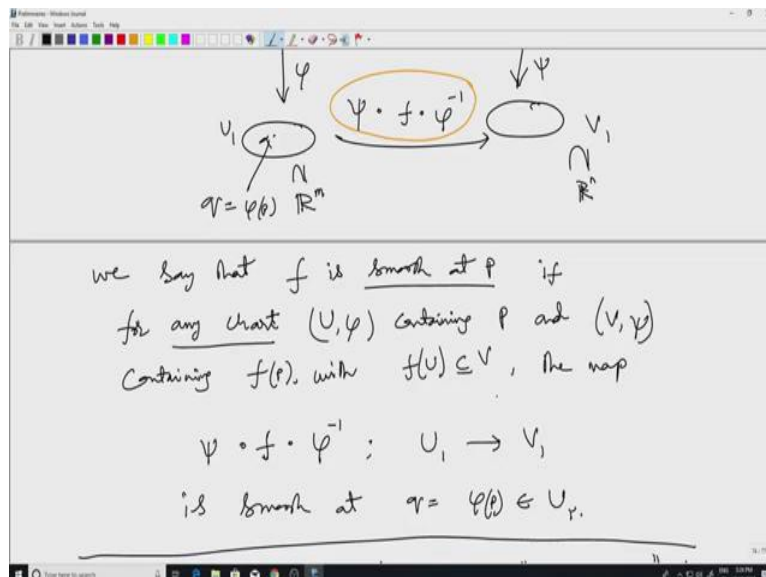 Preliminaries - Windows Journal
File Edit View Insert Actions Tools Help
B I
φ ψ
ψ ∘ f ∘ φ⁻¹
U₁ q. V₁
∩ ∩
q = φ(p) ℝᵐ ℝⁿ
we say that f is smooth at p if
for any chart (U,φ) containing p and (V,ψ)
containing f(p), with f(U) ⊆ V, the map
ψ ∘ f ∘ φ⁻¹ : U₁ → V₁
is smooth at q = φ(p) ∈ U₁.
Type here to search
ENG